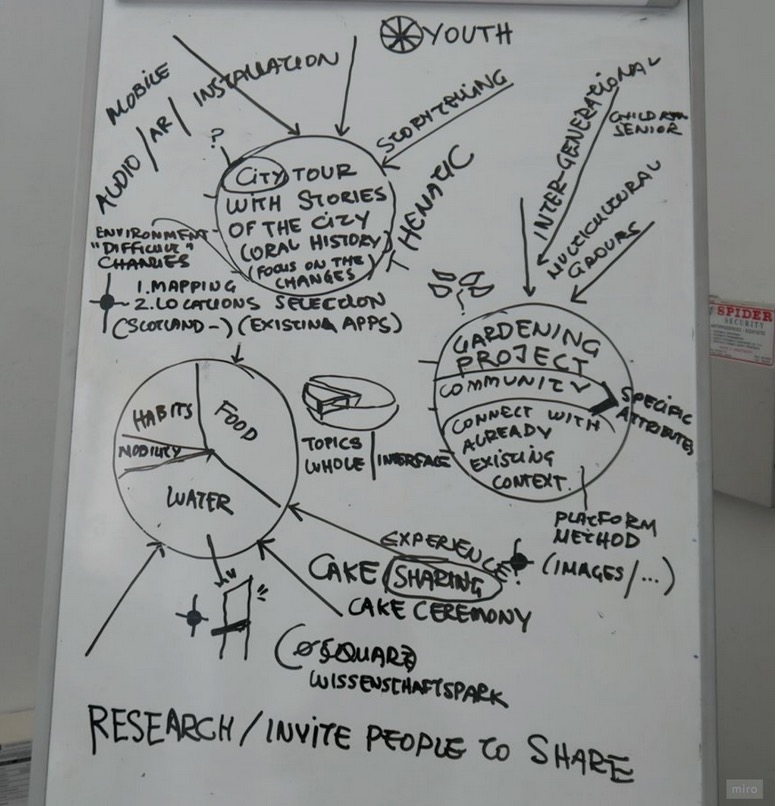 YOUTH
MOBILE
AUDIO/AR/INSTALLATION
STORYTELLING
INTER-GENERATIONAL
CHILDREN
SENIOR
MULTICULTURAL
GROUPS
?
CITY TOUR
WITH STORIES
OF THE CITY
(ORAL HISTORY)
(FOCUS ON THE
CHANGES
THEMATIC
ENVIRONMENT
"DIFFICULT"
CHANGES
1. MAPPING
2. LOCATIONS SELECTION
(SCOTLAND-) (EXISTING APPS)
GARDENING
PROJECT
COMMUNITY
SPECIFIC
ATTRIBUTES
CONNECT WITH
ALREADY
EXISTING
CONTEXT.
HABITS
FOOD
MOBILITY
WATER
TOPICS
WHOLE | INTERFACE
PLATFORM
METHOD
(IMAGES/...)
EXPERIENCE!
CAKE SHARING
CAKE CEREMONY
SQUARE
WISSENSCHAFTSPARK
RESEARCH/INVITE PEOPLE TO SHARE
SPIDER
SECURITY
miro